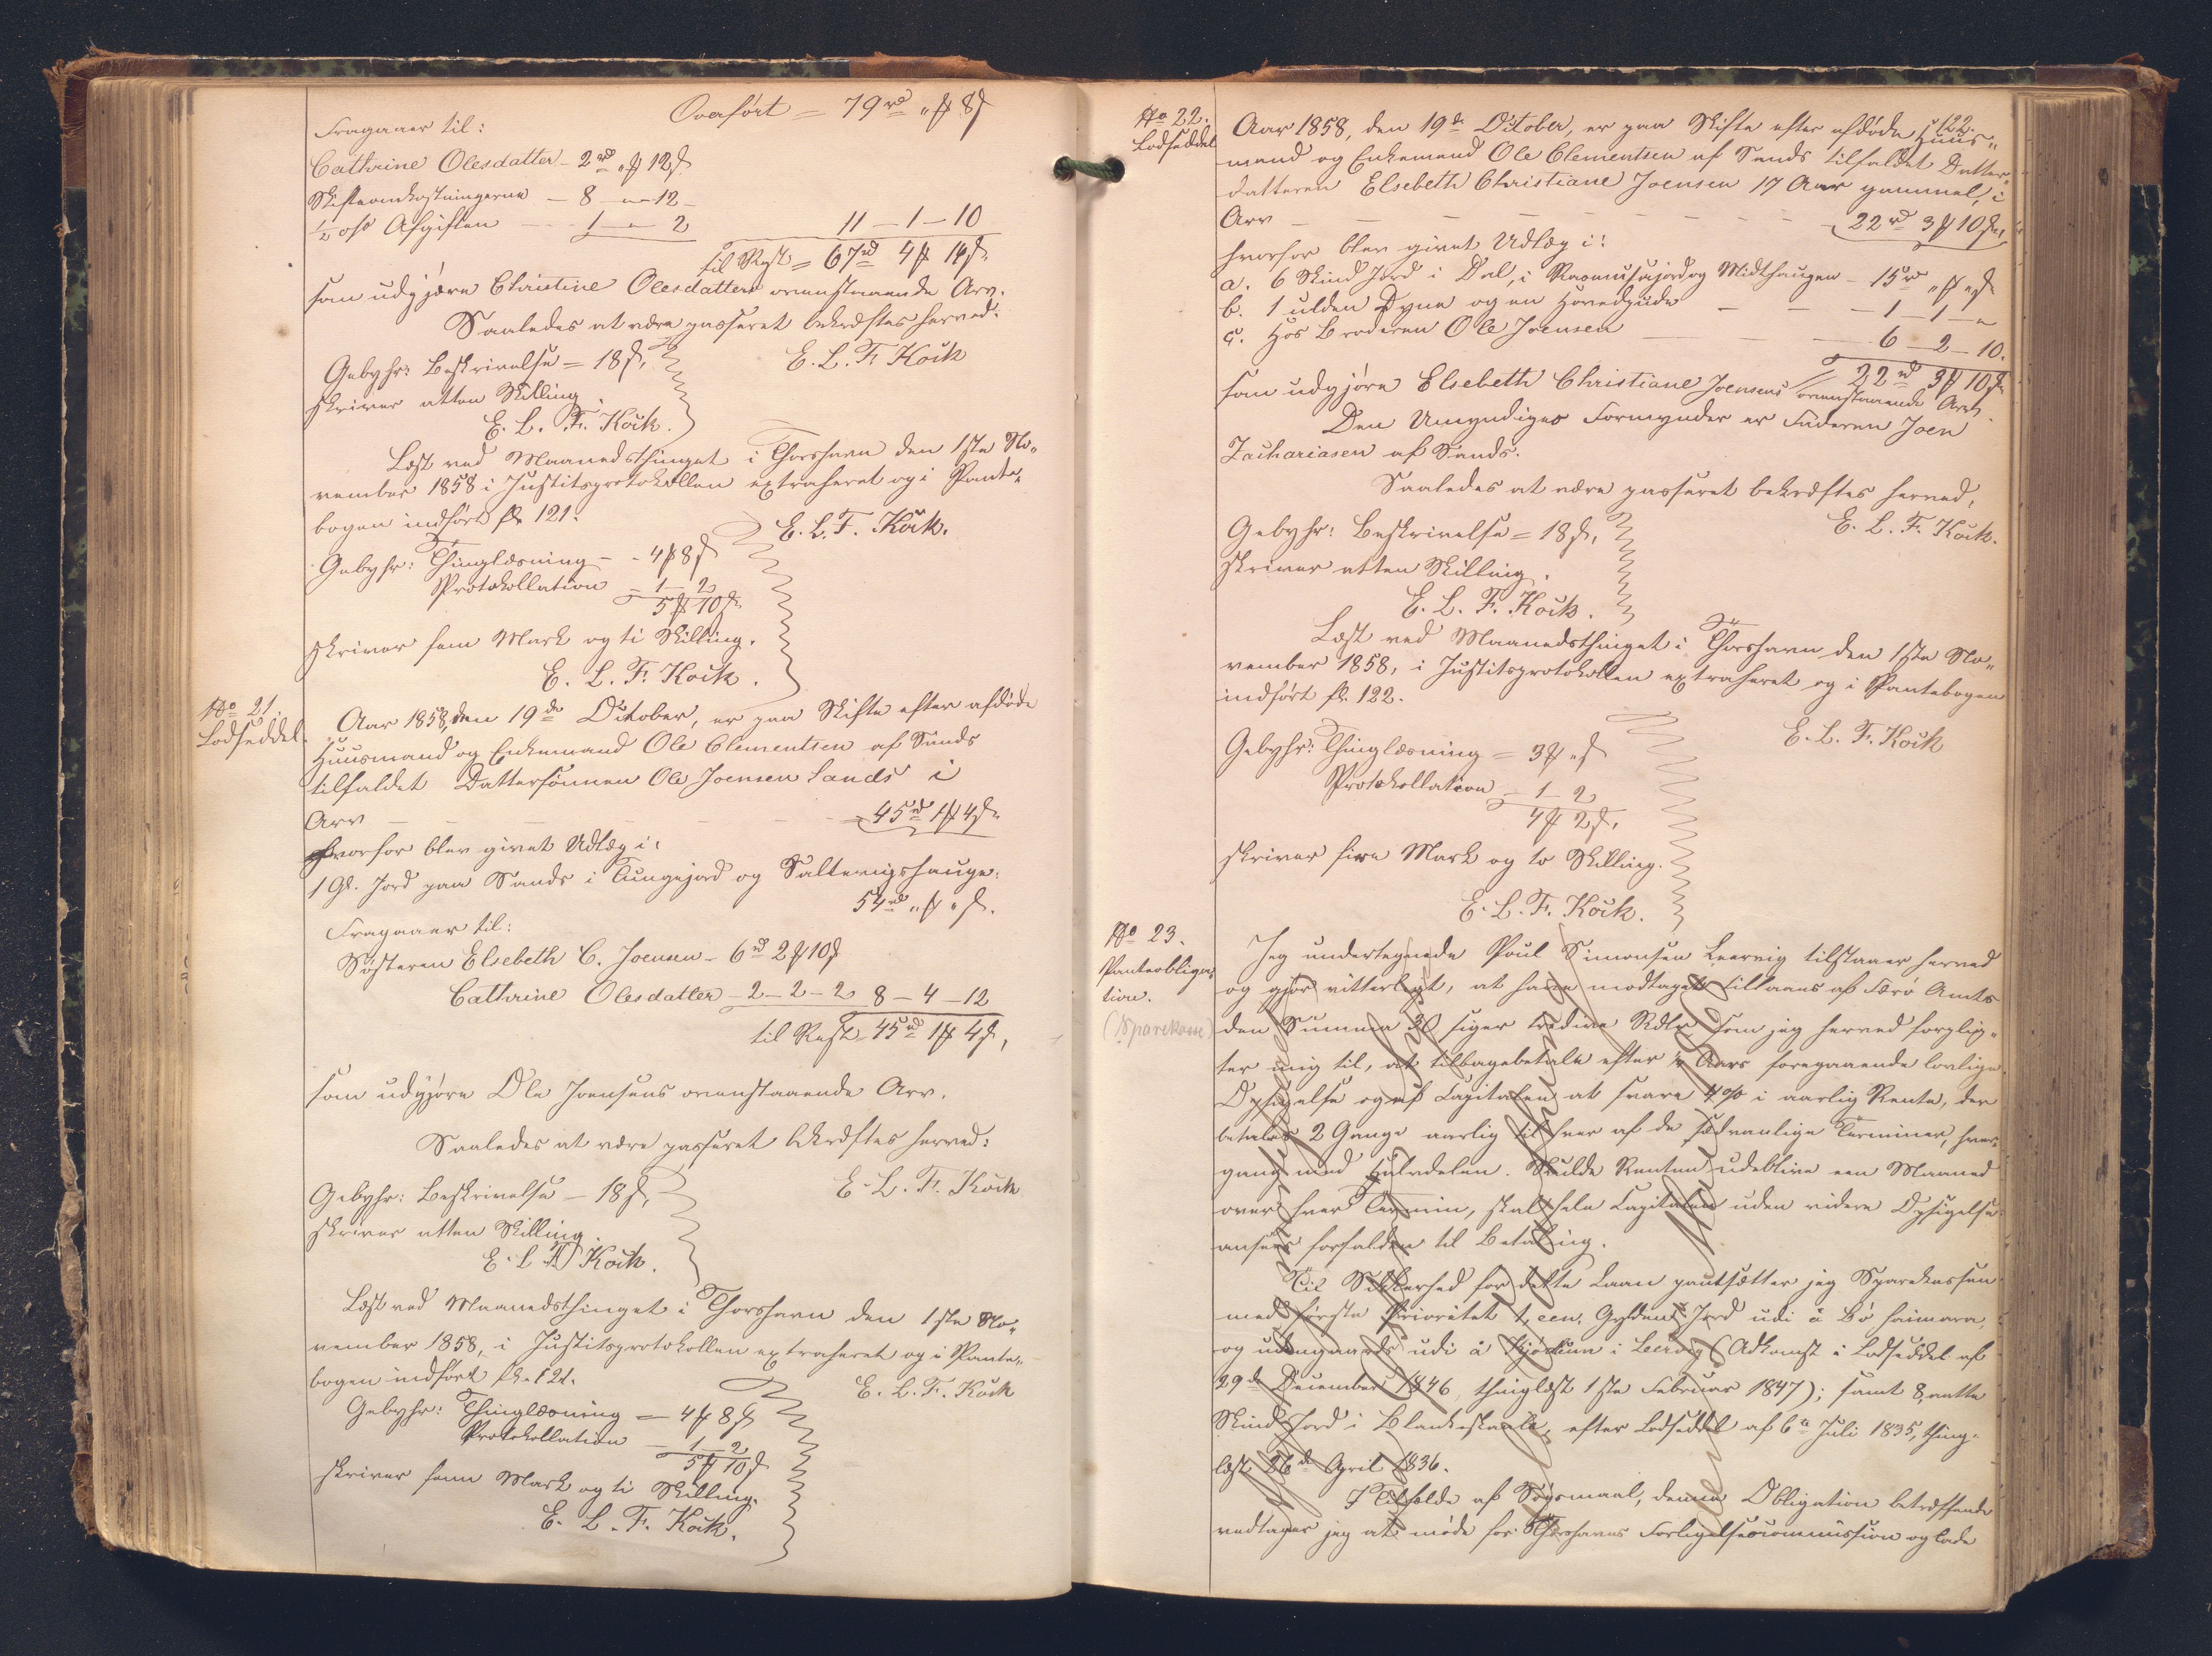 Overført = 79 rd „ ₰ 8 ß
Fragaaer til:
Cathrine Olesdatter - 2 rd „ ₰ 12 ß
Skifteomkostningerne - 8 - „ - 12 -
½ o/o Afgiften - - 1 - „ - 2
11 - 1 - 10
til Rest = 67 rd 4 ₰ 14 ß
som udgjøre Christine Olesdatters ovenstaaende Arv.
Saaledes at være passeret bekræftes herved:
E. L. F. Kock
Gebyhr: Beskrivelse = 18 ß,
skriver atten Skilling
E. L. F. Kock.
Læst ved Maanedsthinget i Thorshavn den 1ste No-
vember 1858 i Justitsprotokollen extraheret og i Pante-
bogen indført fol. 121.
E. L. F. Kock.
Gebyhr: Thinglæsning - - 4 ₰ 8 ß
Protokollation = 1 - 2
5 ₰ 10 ß
skriver fem Mark og ti Skilling.
E. L. F. Kock.
No 21.
Lodseddel.
Aar 1858, den 19de October, er paa Skifte efter afdøde
Huusmand og Enkemand Ole Clementsen af Sands
tilfaldet Dattersønnen Ole Joensen Sands i
Arv - - - - - - - 45 rd 1 ₰ 4 ß
hvorfor blev givet Udlæg i:
1 Gl. Jord paa Sands i Tungejord og Saltvigshauge:
54 rd „ ₰ „ ß.
Fragaaer til:
Søsteren Elsebeth C. Joensen - 6 rd 2 ₰ 10 ß
Cathrine Olesdatter - 2 - 2 - 2 8 - 4 - 12
til Rest = 45 rd 1 ₰ 4 ß,
som udgjøre Ole Joensens ovenstaaende Arv.
Saaledes at være passeret bekræftes herved:
E. L. F. Kock
Gebyhr: Beskrivelse - 18 ß,
skriver atten Skilling
E. L. F. Kock.
Læst ved Maanedsthinget i Thorshavn den 1ste No-
vember 1858, i Justitsprotokollen extraheret og i Pante-
bogen indført fol. 121.
E. L. F. Kock
Gebyhr: Thinglæsning = 4 ₰ 8 ß
Protokollation - 1 - 2
5 ₰ 10 ß
skriver fem Mark og ti Skilling.
E. L. F. Kock.
122.
No 22.
Lodseddel
Aar 1858, den 19de October, er paa Skifte efter afdøde Huus-
mand og Enkemand Ole Clementsen af Sands tilfaldet Datter-
datteren Elsebeth Christiane Joensen 17 Aar gammel, i
Arv - - - - - - - 22 rd 3 ₰ 10 ß
hvorfor blev givet Udlæg i:
a. 6 Skind Jord i Dal, i Rasmusajord og Midthaugen - 15 rd „ ₰ „ ß
b. 1 ulden Dyne og en Hovedpude - - - 1 - 1 - „
c. Hos Broderen Ole Joensen - - - 6 - 2 - 10.
22 rd 3 ₰ 10 ß
som udgjøre Elsebeth Christiane Joensens ovenstaaende Arv.
Den Umyndiges Formynder er Faderen Joen
Zachariasen af Sands.
Saaledes at være passeret bekræftes herved,
E. L. F. Kock.
Gebyhr: Beskrivelse = 18 ß,
skriver atten Skilling.
E. L. F. Kock.
Læst ved Maanedsthinget i Thorshavn den 1ste No-
vember 1858, i Justitsprotokollen extraheret og i Pantebogen
indført fol. 122.
E. L. F. Kock
Gebyhr: Thinglæsning = 3 ₰ „ ß
Protokollation - 1 - 2
4 ₰ 2 ß,
skriver fire Mark og to Skilling.
E. L. F. Kock.
No 23.
Panteobliga-
tion.
(Sparekasse)
Jeg undertegnede Poul Simonsen Leervig tilstaaer herved
og gjør vitterligt, at have modtaget tillaans af Færø Amts
den Summa 30 siger tredive Rdlr som jeg herved forplig-
ter mig til, at tilbagebetale efter ½ Aars foregaaende lovlige
Opsigelse og af Capitalen at svare 4 % i aarlig Rente, der
betales 2 Gange aarlig til hver af de sædvanlige Terminer, hver
gang med Halvdelen. Skulde Renten udeblive een Maaned
over hver Termin, skal hele Capitalen uden videre Opsigelse
ansees forfalden til Betaling.
Til Sikkerhed for dette Laan pantsætter jeg Sparekassen
med første Prioritet 1, een, Gylden Jord udi á Bø heimara,
og udengaards udi á Kjødlum i Leervig (Adkomst i Lodseddel af
29de December 1846, thinglæst 1ste Februar 1847); samt 8, aatte
Skind Jord i Blankeskaale, efter Lodseddel af 6te Juli 1835, thing-
læst 26de April 1836.
I Tilfælde af Søgsmaal, denne Obligation betræffende
vedtager jeg at møde for Thorshavns Forligelsescommission og lade